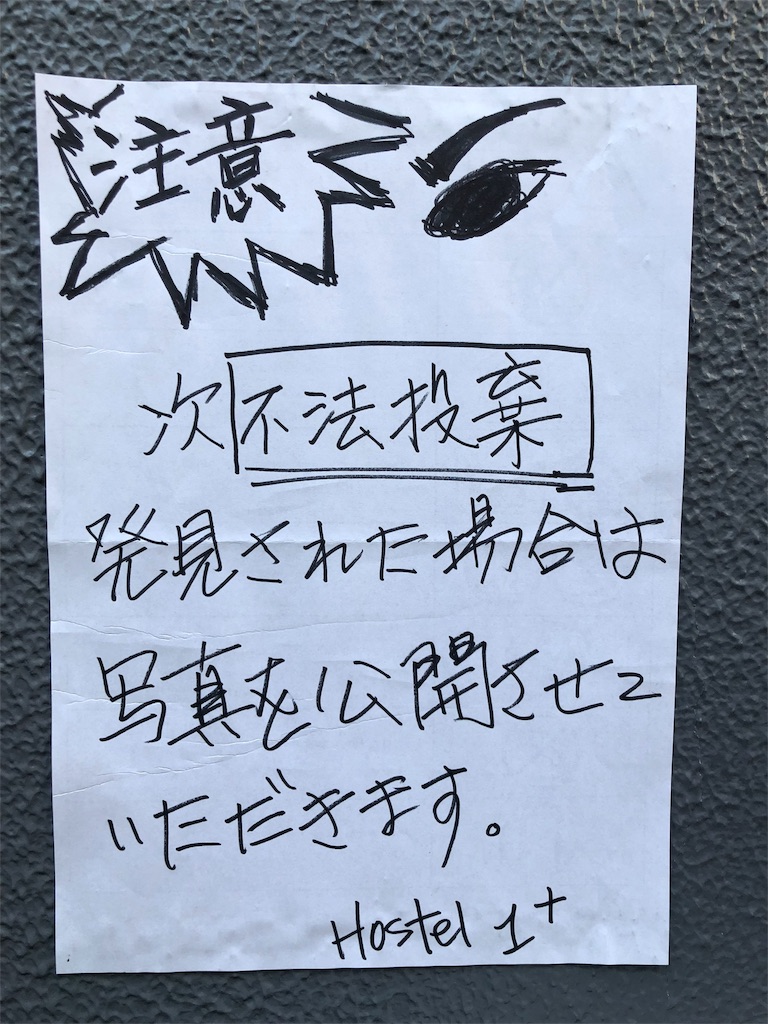 注意
次不法投棄
発見された場合は
写真を公開させて
いただきます。
Hostel 1+